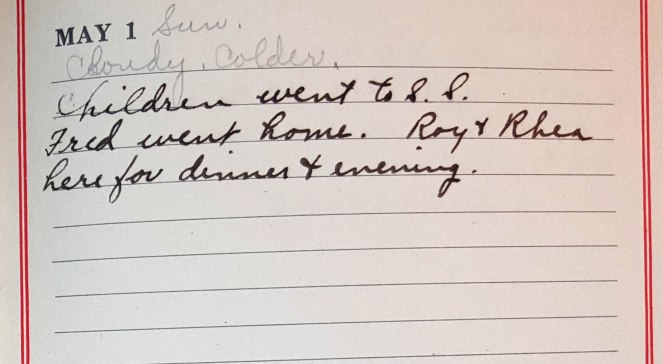 MAY 1 Sun.
Cloudy. Colder.
Children went to S. S.
Fred went home. Roy & Rhea
here for dinner & evening.